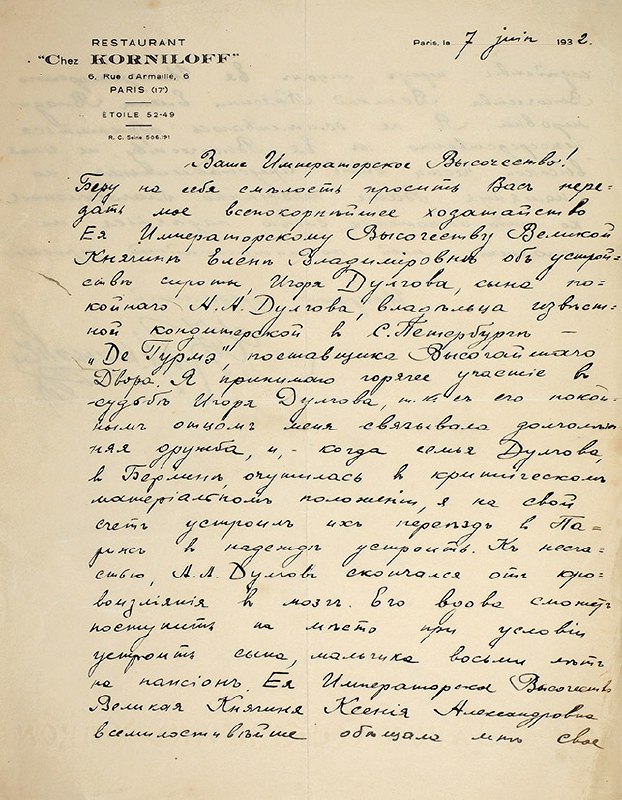 RESTAURANT
"Chez KORNILOFF"
6, Rue d'Armaillé, 6
PARIS (17ᵉ)
ÉTOILE 52-49
R. C. Seine 506.191
Paris, le 7 juin 1932.
Ваше Императорское Высочество!
Беру на себя смѣлость просить Васъ пере=
дать мое всепокорнѣйшее ходатайство
Ея Императорскому Высочеству Великой
Княгинѣ Еленѣ Владиміровнѣ объ устрой=
ствѣ сироты, Игоря Дулгова, сына по=
койнаго А.А. Дулгова, владѣльца извѣст=
ной кондитерской въ С. Петербургѣ —
„Де Гурмэ", поставщика Высочайшаго
Двора. Я принимаю горячее участіе въ
судьбѣ Игоря Дулгова, т.к. съ его покой=
нымъ отцомъ меня связывала долголѣт=
няя дружба, и, - когда семья Дулгова,
въ Берлинѣ, очутилась въ критическомъ
матеріальномъ положеніи, я на свой
счетъ устроилъ ихъ переѣздъ въ Па=
рижъ въ надеждѣ устроить. Къ несча=
стью, А.А. Дулговъ скончался отъ кро=
воизліянія въ мозгъ. Его вдова сможетъ
поступить на мѣсто при условіи
устроить сына, мальчика восьми лѣтъ
на пансіонъ. Ея Императорское Высочество
Великая Княгиня Ксенія Александровна
всемилостивѣйше обѣщала мнѣ свое